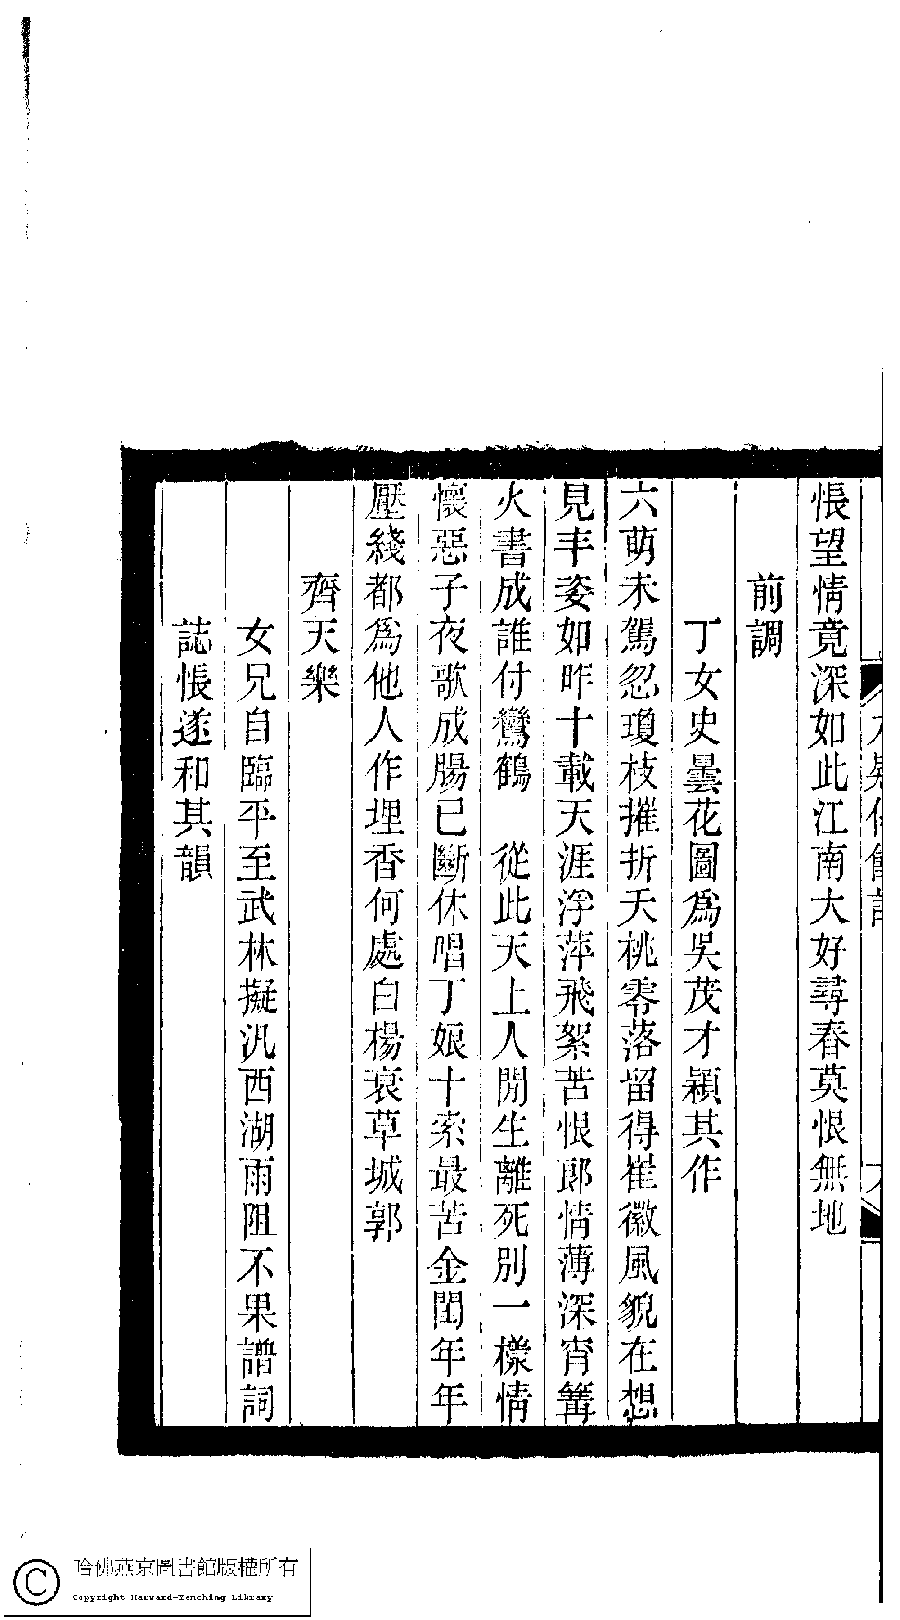 悵望情竟深如此江南大好尋春莫恨無地
前調
丁女史曇花圖爲吳茂才穎其作
六萌未駕忍瓊枝摧折夭桃零落留得崔徽風貌在想
見丰姿如昨十載天涯浮萍飛絮苦恨郎情薄深宵篝
火書成誰付鸞鶴　從此天上人閒生離死別一樣情
懷惡子夜歌成腸已斷休唱丁娘十索最苦金閨年年
壓綫都爲他人作埋香何處白楊衰草城郭
齊天樂
女兄自臨平至武林擬汎西湖雨阻不果譜詞
誌悵遂和其韻
哈佛燕京圖書館版權所有
Copyright Harvard-Yenching Library